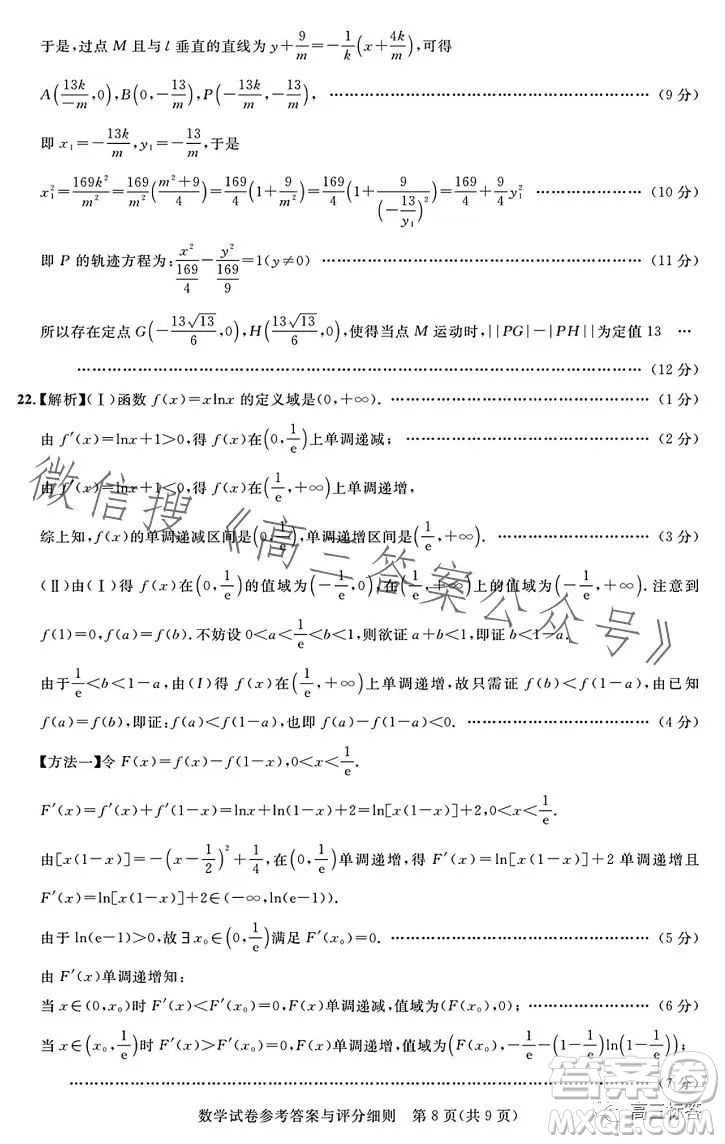 于是,过点 M 且与 l 垂直的直线为 y+9/m=-1/k(x+4k/m),可得
A(13k/-m,0),B(0,-13/m),P(-13k/m,-13/m), ……(9 分)
即 x₁=-13k/m,y₁=-13/m,于是
x₁²=169k²/m²=169/m²((m²+9)/4)=169/4(1+9/m²)=169/4(1+9/(-13/y₁)²)=169/4+9/4y₁² ……(10 分)
即 P 的轨迹方程为:x²/(169/4)-y²/(169/9)=1(y≠0) ……(11 分)
所以存在定点 G(-13√13/6,0),H(13√13/6,0),使得当点 M 运动时,||PG|-|PH||为定值 13 …
……(12 分)
22.【解析】(Ⅰ)函数 f(x)=xlnx 的定义域是(0,+∞). ……(1 分)
由 f′(x)=lnx+1>0,得 f(x)在(0,1/e)上单调递减; ……(2 分)
由 f′(x)=lnx+1<0,得 f(x)在(1/e,+∞)上单调递增,
综上知,f(x)的单调递减区间是(0,1/e),单调递增区间是(1/e,+∞). ……(3 分)
(Ⅱ)由(Ⅰ)得 f(x)在(0,1/e)的值域为(-1/e,0),在(1/e,+∞)上的值域为(-1/e,+∞). 注意到
f(1)=0,f(a)=f(b). 不妨设 0<a<1/e<b<1,则欲证 a+b<1,即证 b<1-a.
由于1/e<b<1-a,由(Ⅰ)得 f(x)在(1/e,+∞)上单调递增,故只需证 f(b)<f(1-a),由已知
f(a)=f(b),即证:f(a)<f(1-a),也即 f(a)-f(1-a)<0. ……(4 分)
【方法一】令 F(x)=f(x)-f(1-x),0<x<1/e.
F′(x)=f′(x)+f′(1-x)=lnx+ln(1-x)+2=ln[x(1-x)]+2,0<x<1/e.
由[x(1-x)]=-(x-1/2)²+1/4,在(0,1/e)单调递增,得 F′(x)=ln[x(1-x)]+2 单调递增且
F′(x)=ln[x(1-x)]+2∈(-∞,ln(e-1)).
由于 ln(e-1)>0,故∃x₀∈(0,1/e)满足 F′(x)=0. ……(5 分)
由 F′(x)单调递增知:
当 x∈(0,x₀)时 F′(x)<F′(x₀)=0,F(x)单调递减,值域为(F(x₀),0); ……(6 分)
当 x∈(x₀,1/e)时 F′(x)>F′(x₀)=0,F(x)单调递增,值域为(F(x₀),-1/e-(1-1/e)ln(1-1/e));
……(7 分)
数学试卷参考答案与评分细则 第 8 页(共 9 页)
微信搜《高三答案公众号》
高三标答